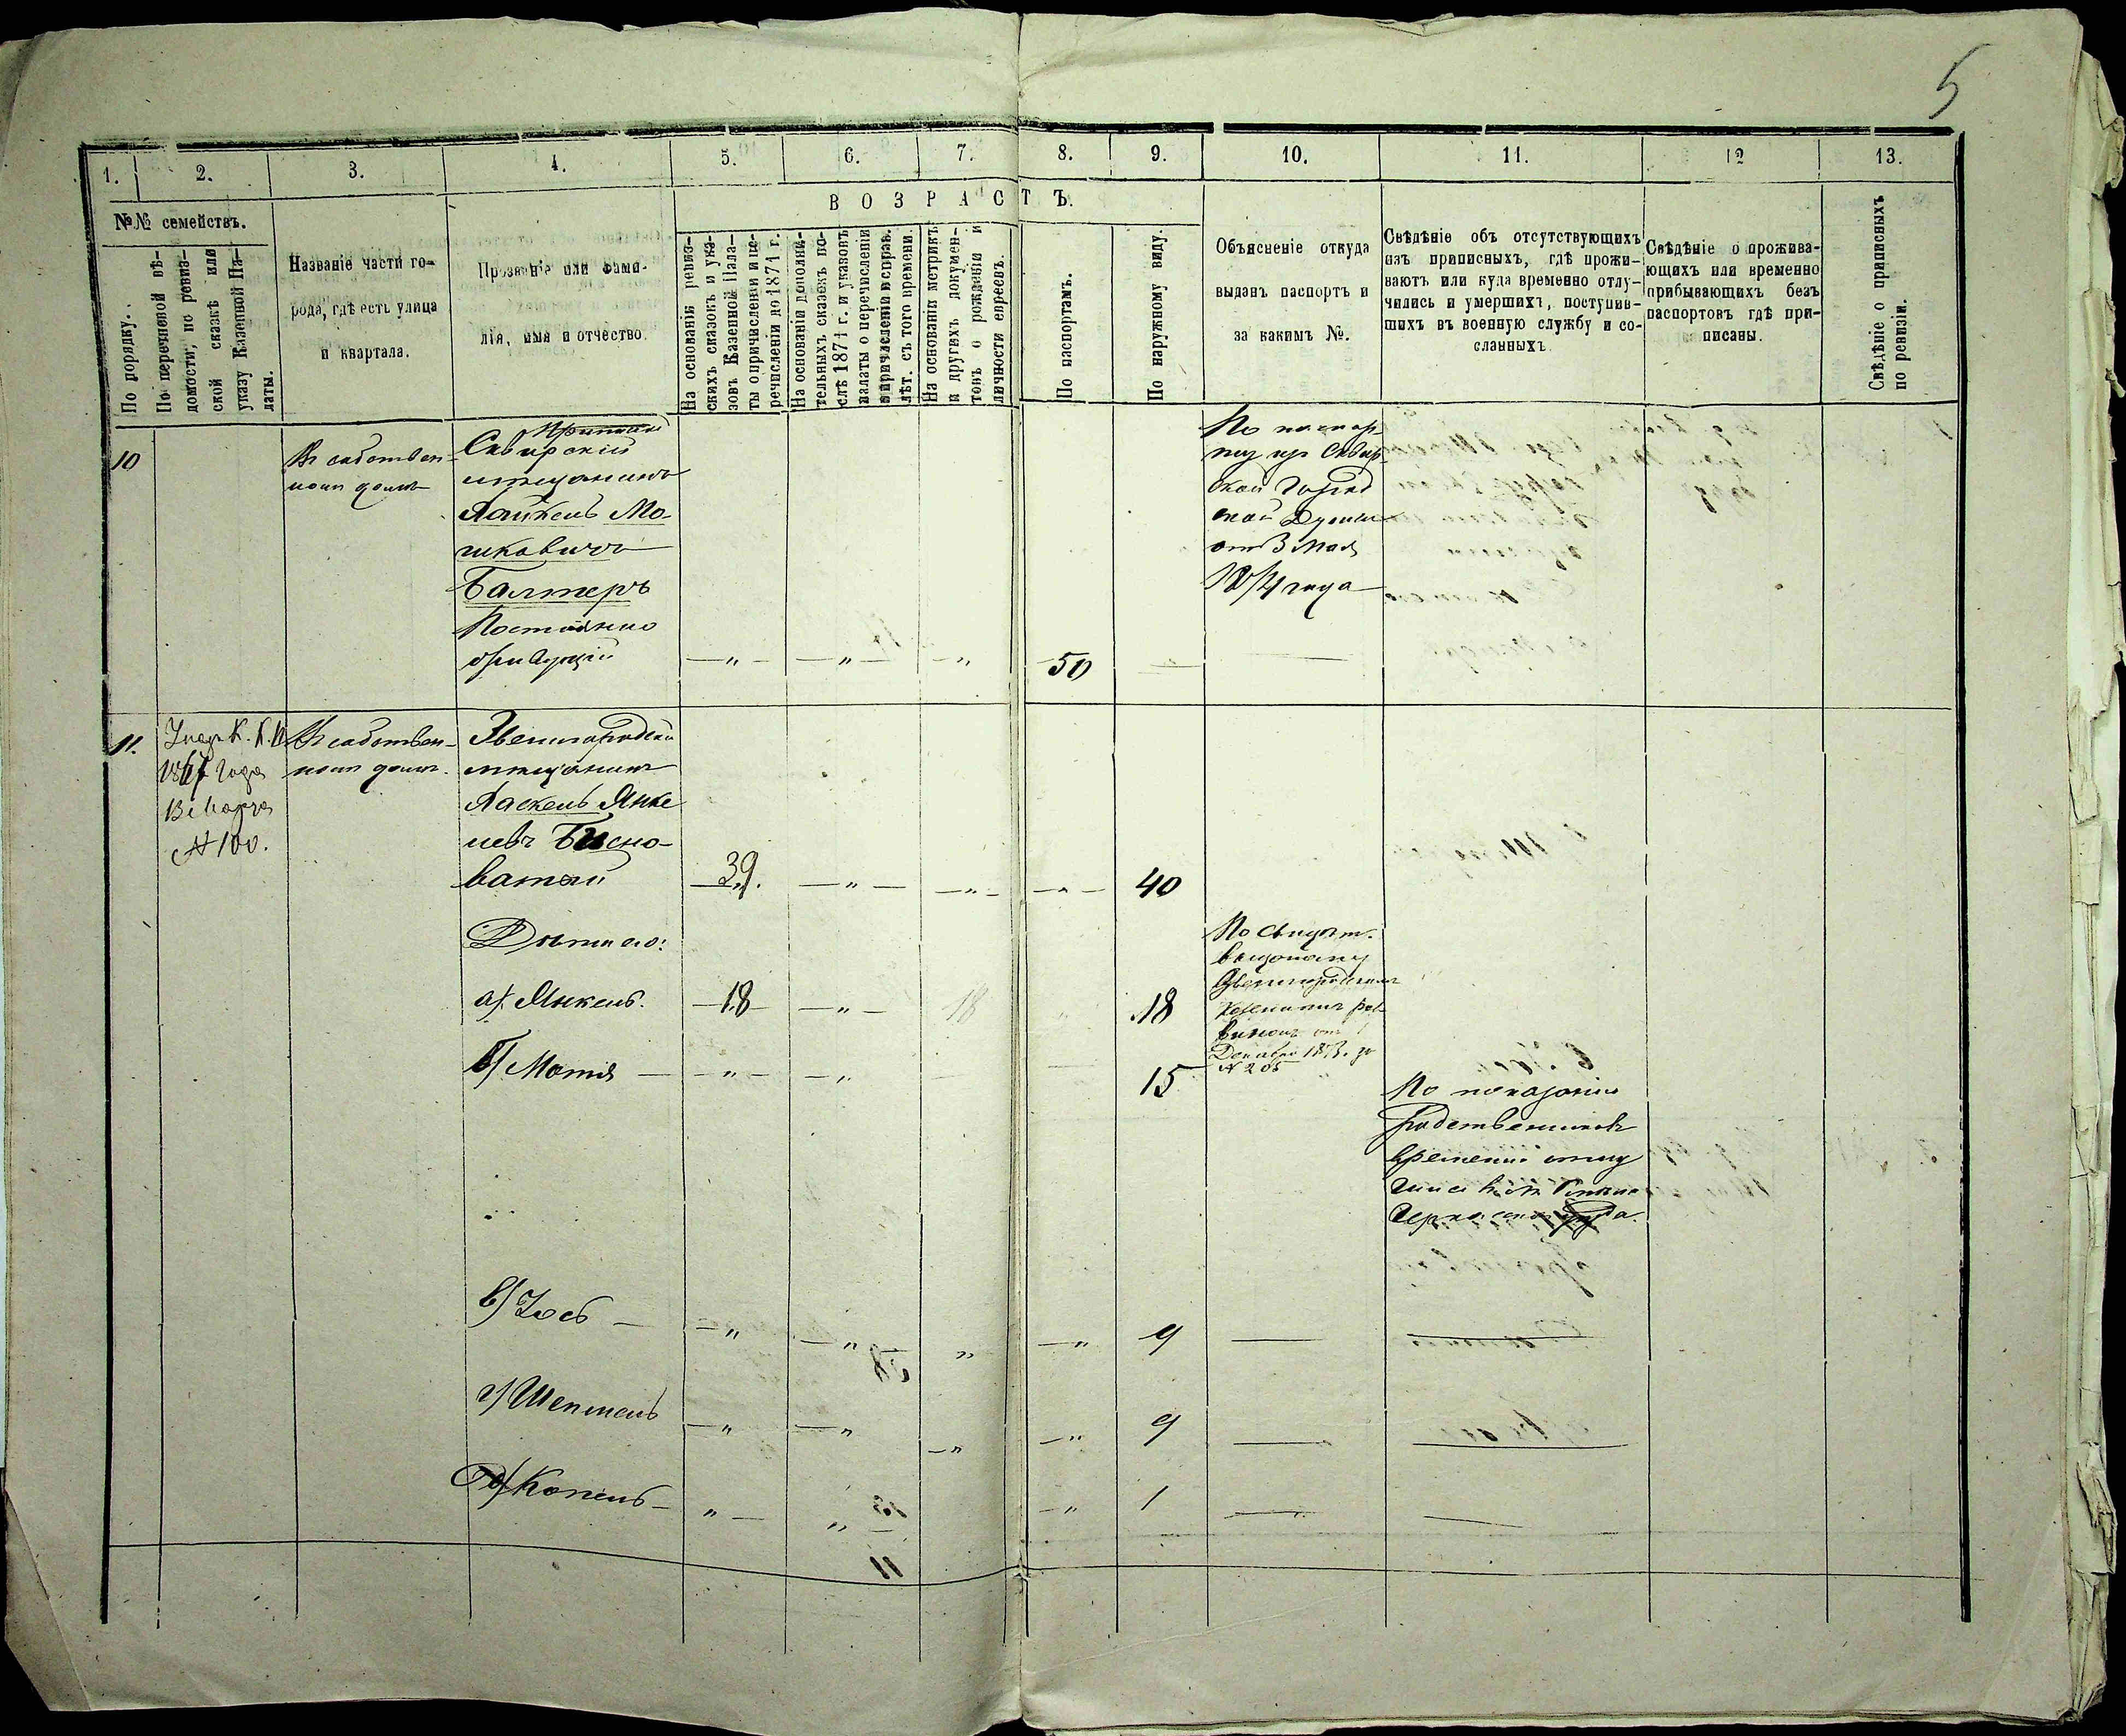 5
1. 2. 3. 4. 5. 6. 7. 8. 9. 10. 11. 12 13.
№№ семействъ.
По порядку.
По перечневой вѣ-
домости, по ревиз-
ской сказкѣ или
указу Казенной Па-
латы.
Названіе части го-
рода, гдѣ есть улица
и квартала.
Прозваніе или фами-
лія, имя и отчество.
ВОЗРАСТЪ.
На основаніи ревиз-
скихъ сказокъ и ука-
зовъ Казенной Пала-
ты о причисленіи и пе-
речисленіи до 1871 г.
На основаніи дополни-
тельныхъ сказокъ по-
слѣ 1871 г. и указовъ
палаты о перечисленіи
и причисленіи и справ.
лѣт. съ того времени.
На основаніи метрикъ
и другихъ докумен-
товъ о рожденіи и
личности евреевъ.
По паспортамъ.
По наружному виду.
Объясненіе откуда
выданъ паспортъ и
за какимъ №.
Свѣдѣніе объ отсутствующихъ
изъ приписныхъ, гдѣ прожи-
ваютъ или куда временно отлу-
чились и умершихъ, поступив-
шихъ въ военную службу и со-
сланныхъ.
Свѣдѣніе о прожива-
ющихъ или временно
прибывающихъ безъ
паспортовъ гдѣ при-
писаны.
Свѣдѣніе о приписныхъ
по ревизіи.
10
Въ собствен-
номъ домѣ
Сквирскій
мѣщанинъ
Мо-
шковичъ
Балтеръ
Постоянно
живущій
—„— —„— —„ 50
По паспор-
ту изъ Сквир-
ской Город
ской Думы
отъ 3 Мая
1874 года
11.
Указ К. К. П
1867 Года
13 Марта
№ 100.
Въ собствен-
номъ домѣ.
Звенигородскій
мѣщанинъ
Хаскель Янке
левъ Бисно-
ватый
39. —„— —„— —„— 40
Дѣти его:
а) Янкель. 18 —„— 18 18
По свидѣт.
выданому
Звенигородскимъ
Казеннымъ рав
виномъ от 1
Декабря 1873. за
№ 205
б) Мотя — —„— —„ 15
По показанію
Родственниковъ
временно отлу
чился
в) Іось — —„ —„ „ —„ 9
г) Шепшель —„ —„ —„ —„ 9
д) Копель — „— „ —„ 1